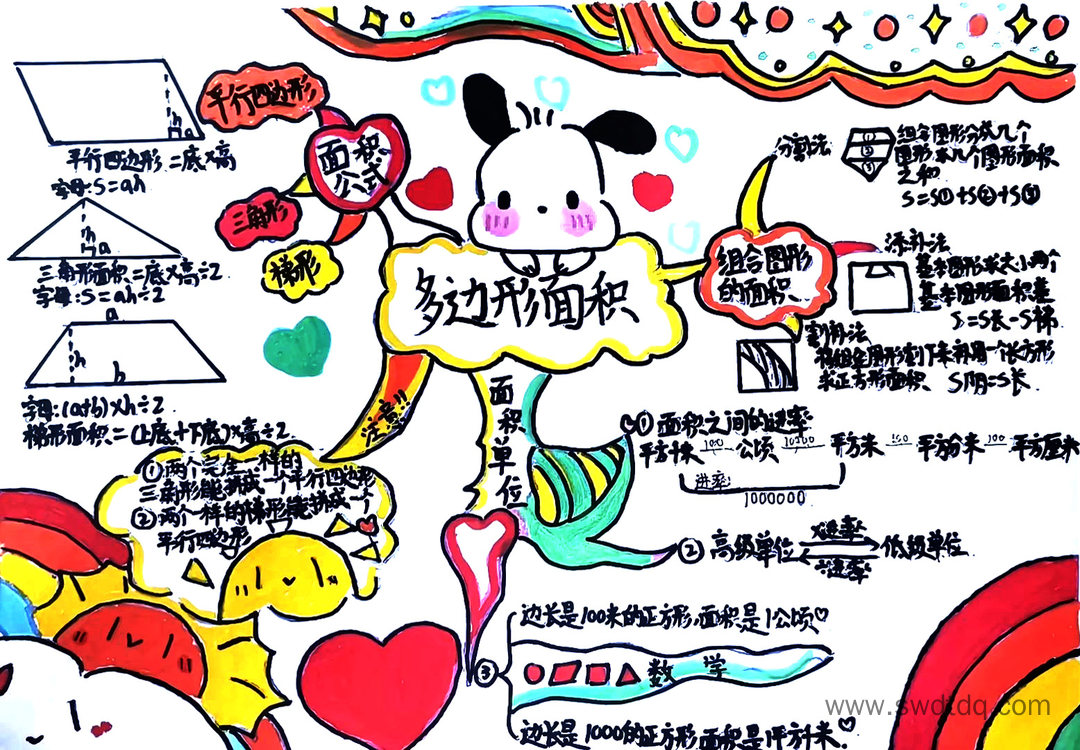 多边形面积
面积
公式
平行四边形
三角形
梯形
h
a
平行四边形=底×高
字母:S=ah
h
a
三角形面积=底×高÷2
字母:S=ah÷2
a
h
b
字母:(a+b)×h÷2
梯形面积=(上底+下底)×高÷2
注意!!
①两个完全一样的
三角形能拼成一个平行四边形
②两个一样的梯形能拼成一个
平行四边形
组合图形
的面积
分割法
①
②
③
组合图形分成几个
图形 求几个图形面积
之和
S=S①+S②+S③
添补法
基本图形求大小两个
基本图形面积差
S=S长-S梯
割补法
将组合图形割下来再用一个长方形
求正方形面积 S阴=S长
面积单位
①面积之间的进率
平方千米 100 公顷 10000 平方米 100 平方分米 100 平方厘米
进率:
1000000
②高级单位 ×进率 ÷进率 低级单位
③
边长是100米的正方形,面积是1公顷
数学
边长是1000的正方形,面积是1平方千米.
www.swdtdq.com